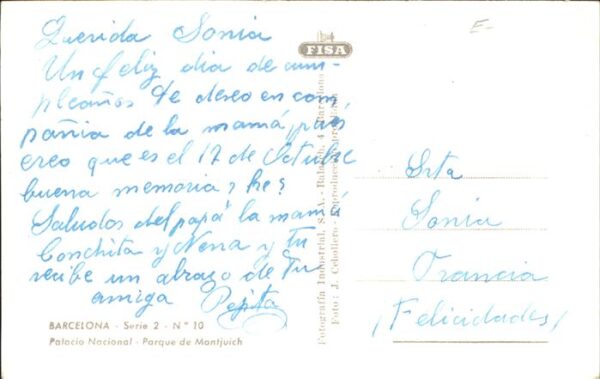 Querida Sonia
Un feliz dia de cum-
pleaños te deseo en com
pañia de la mamá, pues
creo que es el 17 de Octubre
buena memoria ¿ he?
Saludos del papá la mamá
Conchita y Nena y tu
recibe un abrazo de tu
amiga Pepita
BARCELONA - Serie 2 - Nº 10
Palacio Nacional - Parque de Montjuich
FISA
Fotografía Industrial, S. A. - Balmes, 4 - Barcelona
Foto: J. Cebollero - Reproducción
E-
Srta
Sonia
Orancia
¡Felicidades!